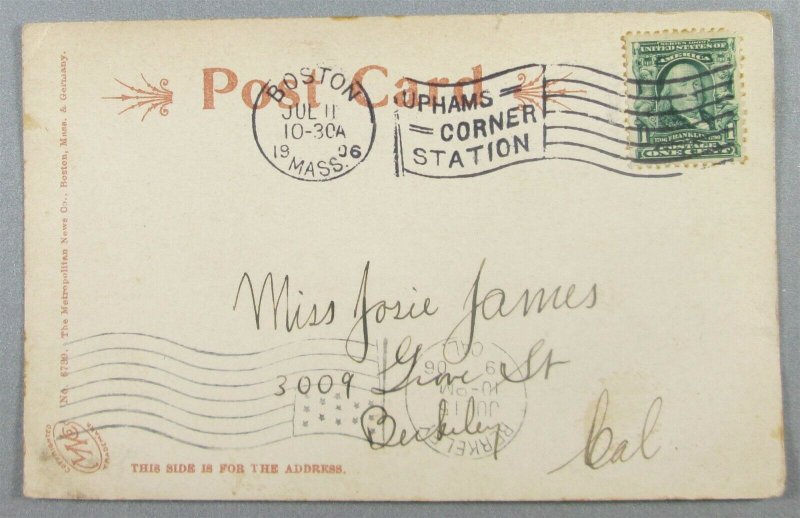 Post Card
BOSTON
JUL 11
10-30A
1906
MASS.
UPHAMS
CORNER
STATION
SERIES 1902
UNITED STATES OF
AMERICA
FRANKLIN
POSTAGE
ONE CENT
1
No. 6739. The Metropolitan News Co., Boston, Mass. & Germany.
Miss Josie James
3009 Grove St
Berkeley
Cal
BERKELEY
JUL
10-PM
1906
CAL.
THIS SIDE IS FOR THE ADDRESS.